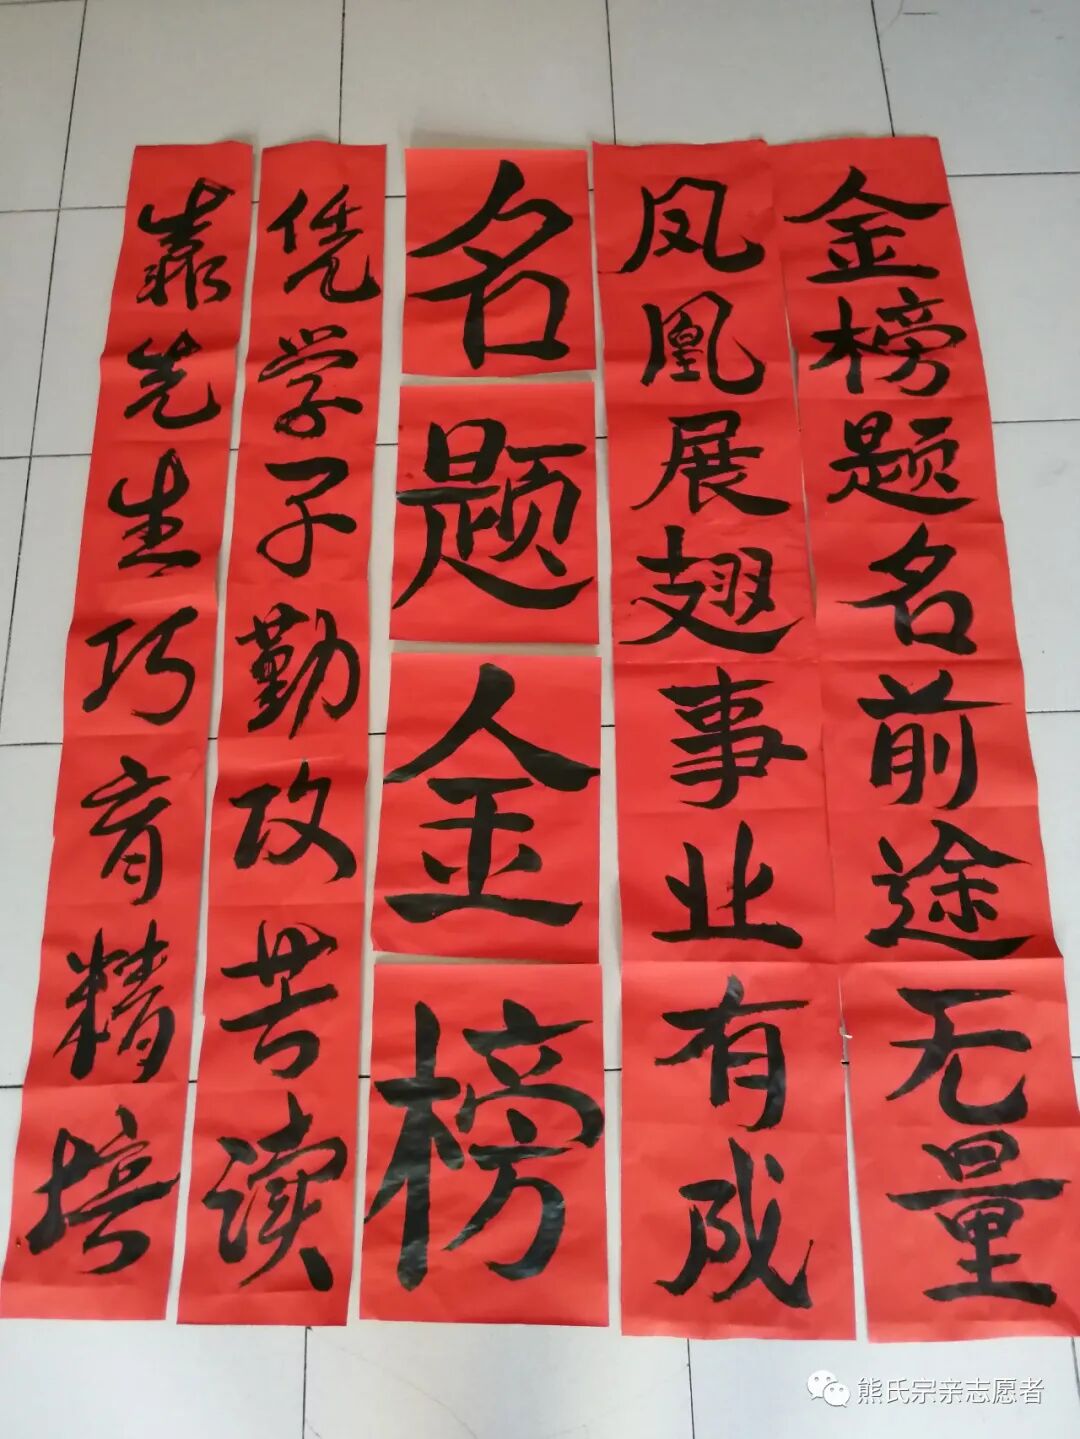 金榜题名前途无量
凤凰展翅事业有成
名题金榜
凭学子勤攻苦读
靠先生巧育精培
熊氏宗亲志愿者